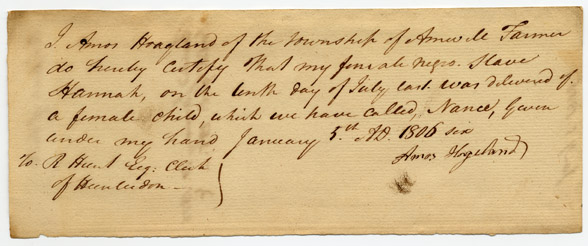 I. Amos Hoagland of the township of Amwell Farmer
do hereby certify that my female negro Slave
Hannah, on the tenth day of July last was delivered of
a female child, which we have called, Nance, Given
under my hand January 5.th AD. 1806 six
Amos Hogeland
To. R Hunt Esq: Clerk
of Hunterdon